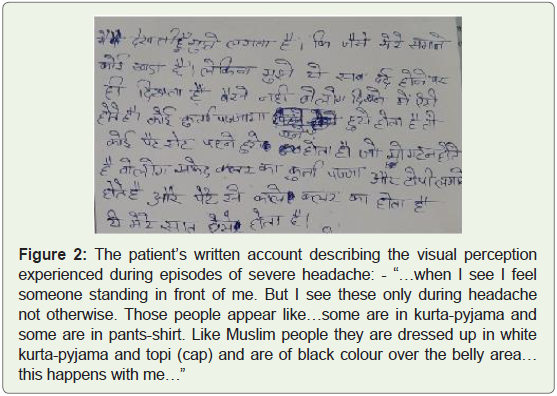 मैं देखती हूँ मुझे लगता है। कि जैसे मेरे सामने
कोई खड़ा है। लेकिन मुझे ये सब दर्द होने पर
ही दिखता है वैसे नहीं वो लोग दिखने में ऐसे
होते है। कोई कुर्ता पजामा हुये होता है तो
कोई पैंट सेट पहने होता है। जो होते
है वो लोग सफेद कलर का कुर्ता पज्मा और टोपी लगाये
होते है और पेट से काले कलर का होता है
ये मेरे सात होता है।
Figure 2: The patient's written account describing the visual perception
experienced during episodes of severe headache: - "…when I see I feel
someone standing in front of me. But I see these only during headache
not otherwise. Those people appear like…some are in kurta-pyjama and
some are in pants-shirt. Like Muslim people they are dressed up in white
kurta-pyjama and topi (cap) and are of black colour over the belly area…
this happens with me…"